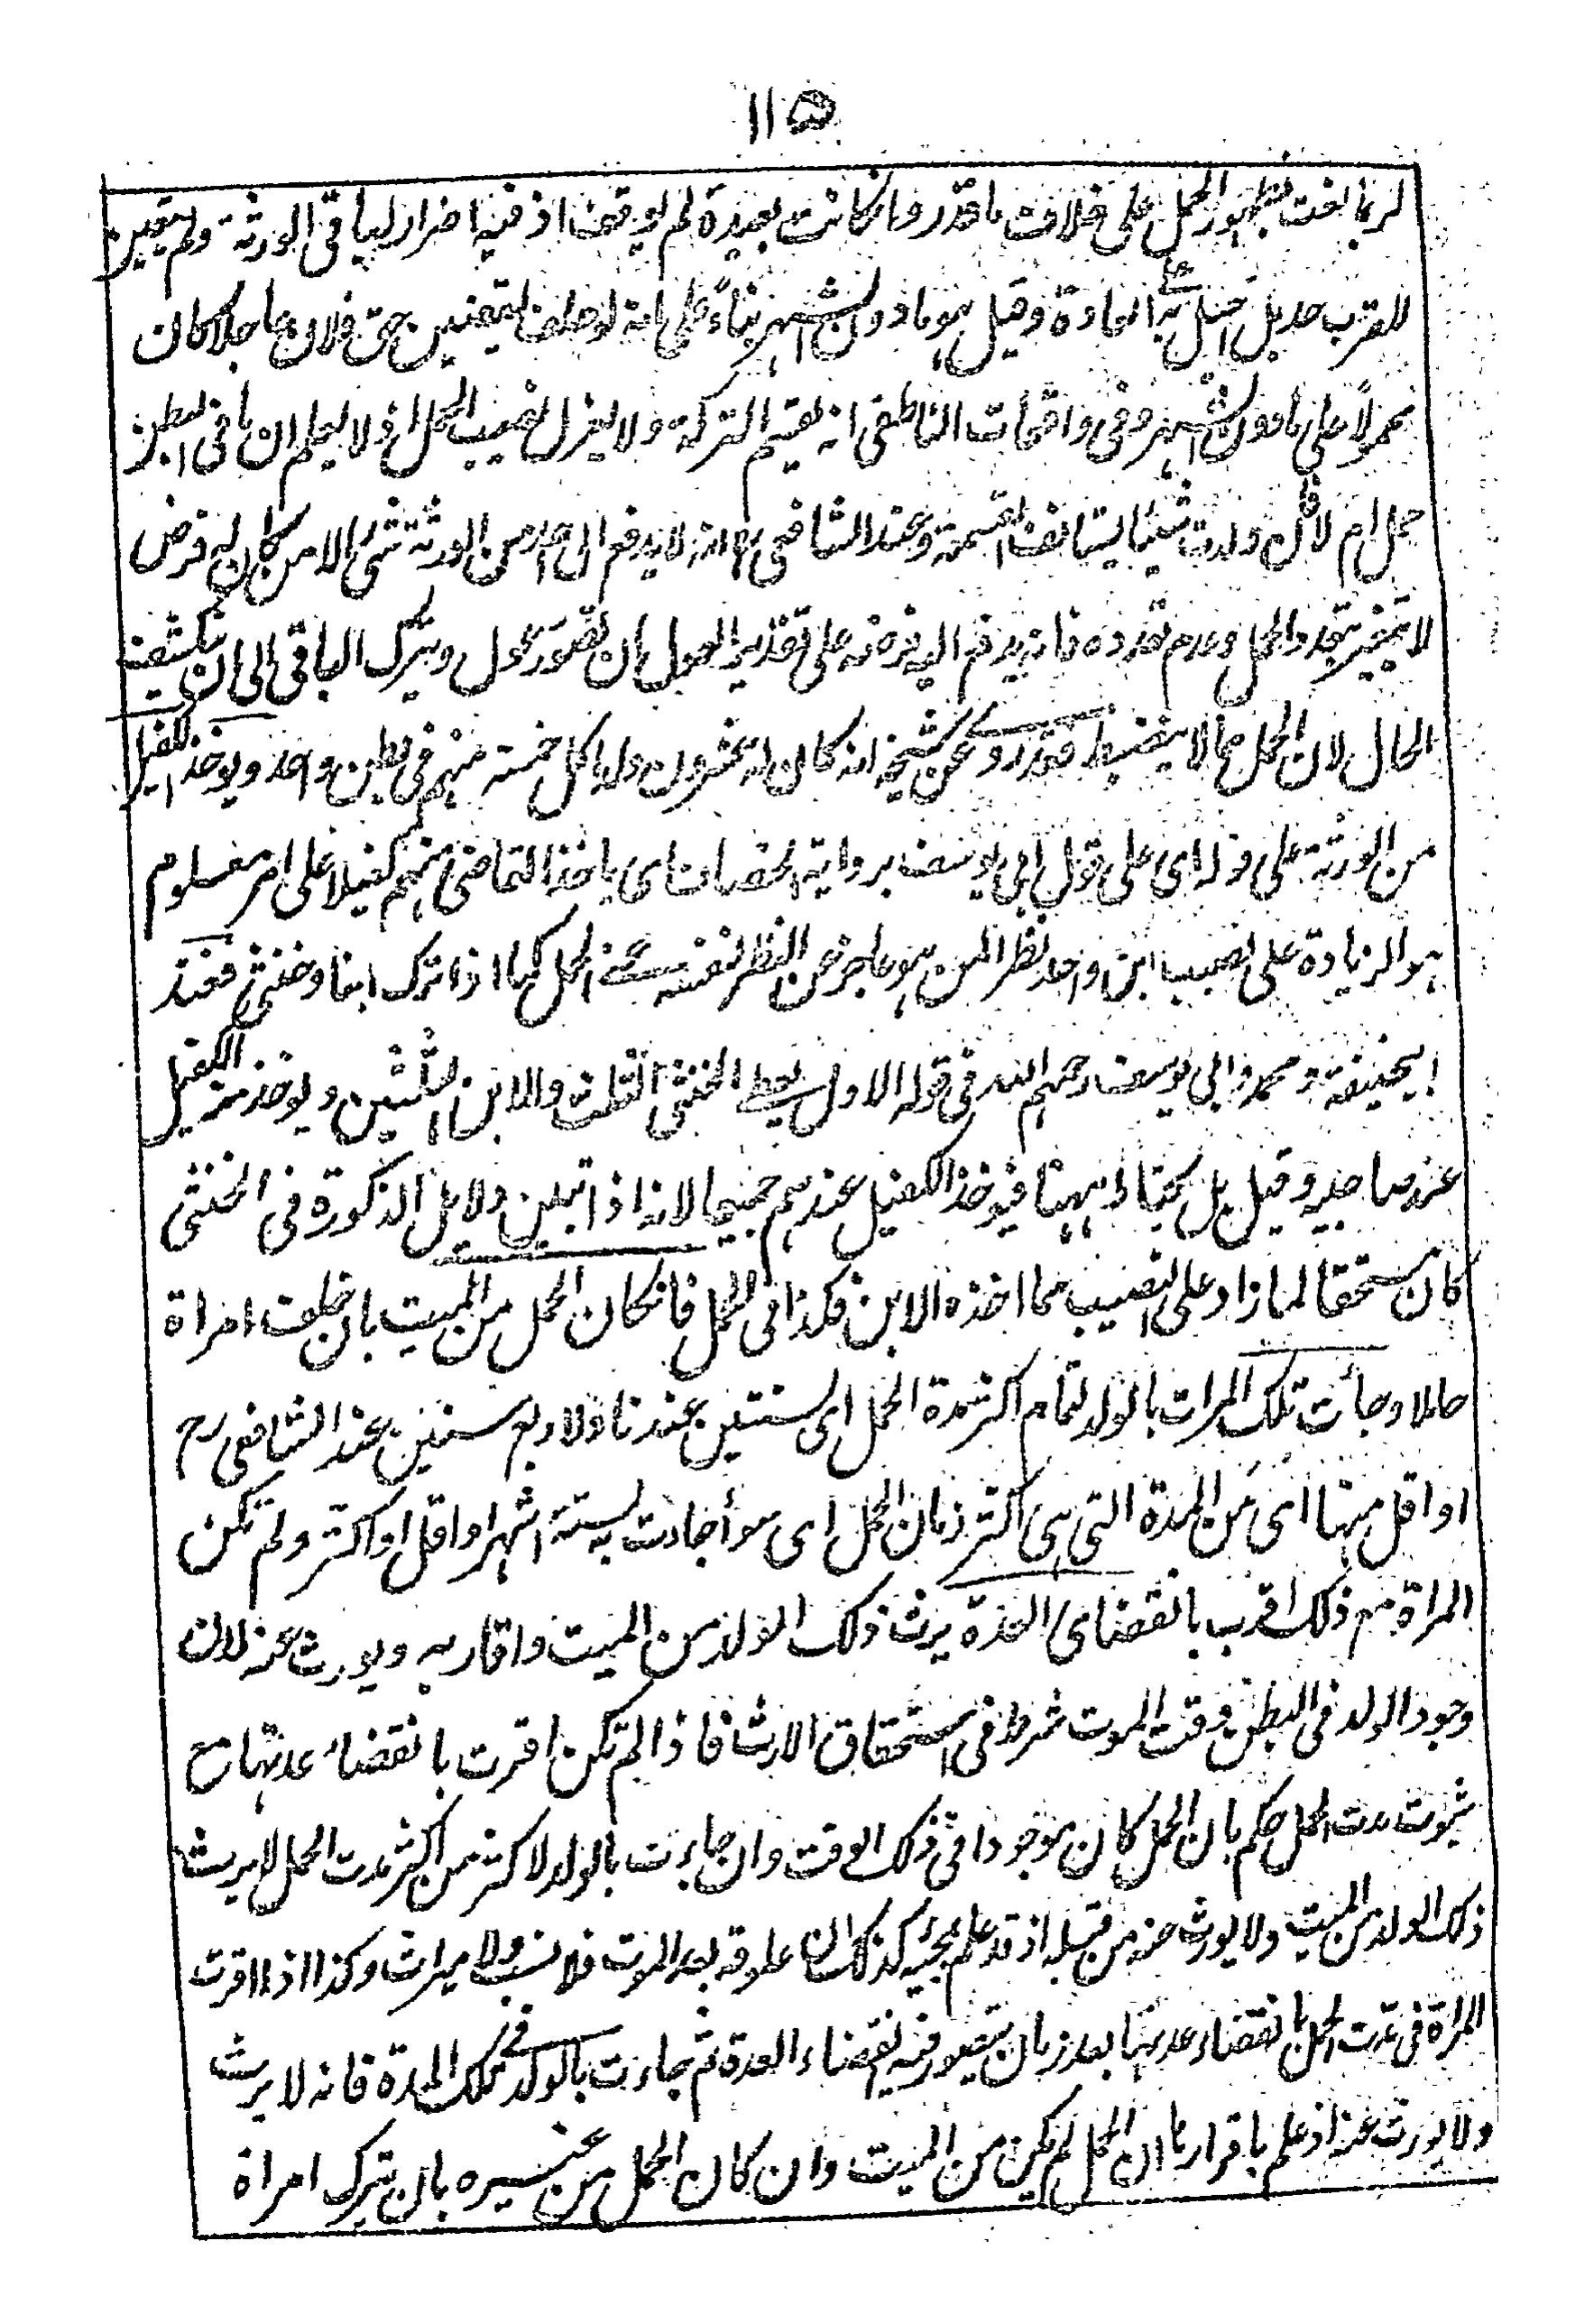 ١١٥
لربما لغت بظهور الحمل على خلاف ما قدر وانكانت بعيدة لم يوقف اذ فيه اضرار لباقى الورثة ولم يتعين
للقرب حد بل احيل به على العادة وقيل هو مادون الشهر بناءً على انه لو حلف ليقضين حق فلان عاجلا كان
محمولاً على مادون الشهر وفى واقعات الناطفى انه يقسم التركة ولا يعزل نصيب الحمل اذ لا يعلم ان ما فى البطن
حمل ام لا فان ولدت شيئا يستانف القسمة وعند الشافعى رح انه لا يدفع الى احد من الورثة شئ الا من كان له فرض
لا يتغير بتعدد الحمل وعدم تعدده فانه يدفع اليه فرضه على تقدير العول بان تصور عول ويترك الباقى الى ان ينكشف
الحال لان الحمل مما لا ينضبط قدره وعن شيخه انه كان له عشرون ولدا كل خمسة منهم فى بطن واحد ويوخذ الكفيل
من الورثة على قوله اى على قول ابى يوسف برواية الخصاف اى ياخذ القاضى منهم كفيلا على امر معلوم
هو الزيادة على نصيب ابن واحد نظرا لمن هو عاجز عن النظر لنفسه اعنى الحمل كما اذا ترك ابنا وخنثى فعند
ابيحنيفة ومحمد وابى يوسف رحمهم الله فى قوله الاول يعطى الخنثى الثلث والابن الثلثين ويوخذ منه الكفيل
عند صاحبيه وقيل بل يحتاط ههنا فيوخذ الكفيل عندهم جميعا لانه اذا تبين دلايل الذكورة فى الخنثى
كان مستحقا لما زاد على النصيب مما اخذه الابن فكذا فى الحمل فانكان الحمل من الميت بان خلف امراة
حاملا وجأت تلك المرات بالولد لتمام اكثر مدة الحمل اى سنتين عندنا ولاربع سنين عند الشافعى رح
او اقل منها اى من المدة التى هى اكثر زمان الحمل اى سوأ جاءت به لستة اشهر او اقل او اكثر ولم تكن
المراة مع ذلك اقرت بانقضاى العدة يرث ذلك الولد من الميت واقاربه ويورث عنه لان
وجود الولد فى البطن وقت الموت شرط فى استحقاق الارث فاذا لم تكن اقرت بانقضاء عدتها مع
ثبوت مدت الحمل حكم بان الحمل كان موجودا فى ذلك الوقت وان جاءت بالولد لاكثر من اكثر مدت الحمل لا يرث
ذلك الولد من الميت ولا يورث عنه من قبله اذ قد علم بمجيئه كذلك ان علوقه بعد الموت فلا نسب ولا ميراث وكذا اذا اقرت
المراة فى مدت الحمل بانقضاء عدتها بعد زمان يتصور فيه انقضاء العدة ثم جاءت بالولد فى تلك المدة فانه لا يرث
ولا يورث عنه اذ علم باقرارها ان الحمل لم يكن من الميت وان كان الحمل من غيره بان يترك امراة